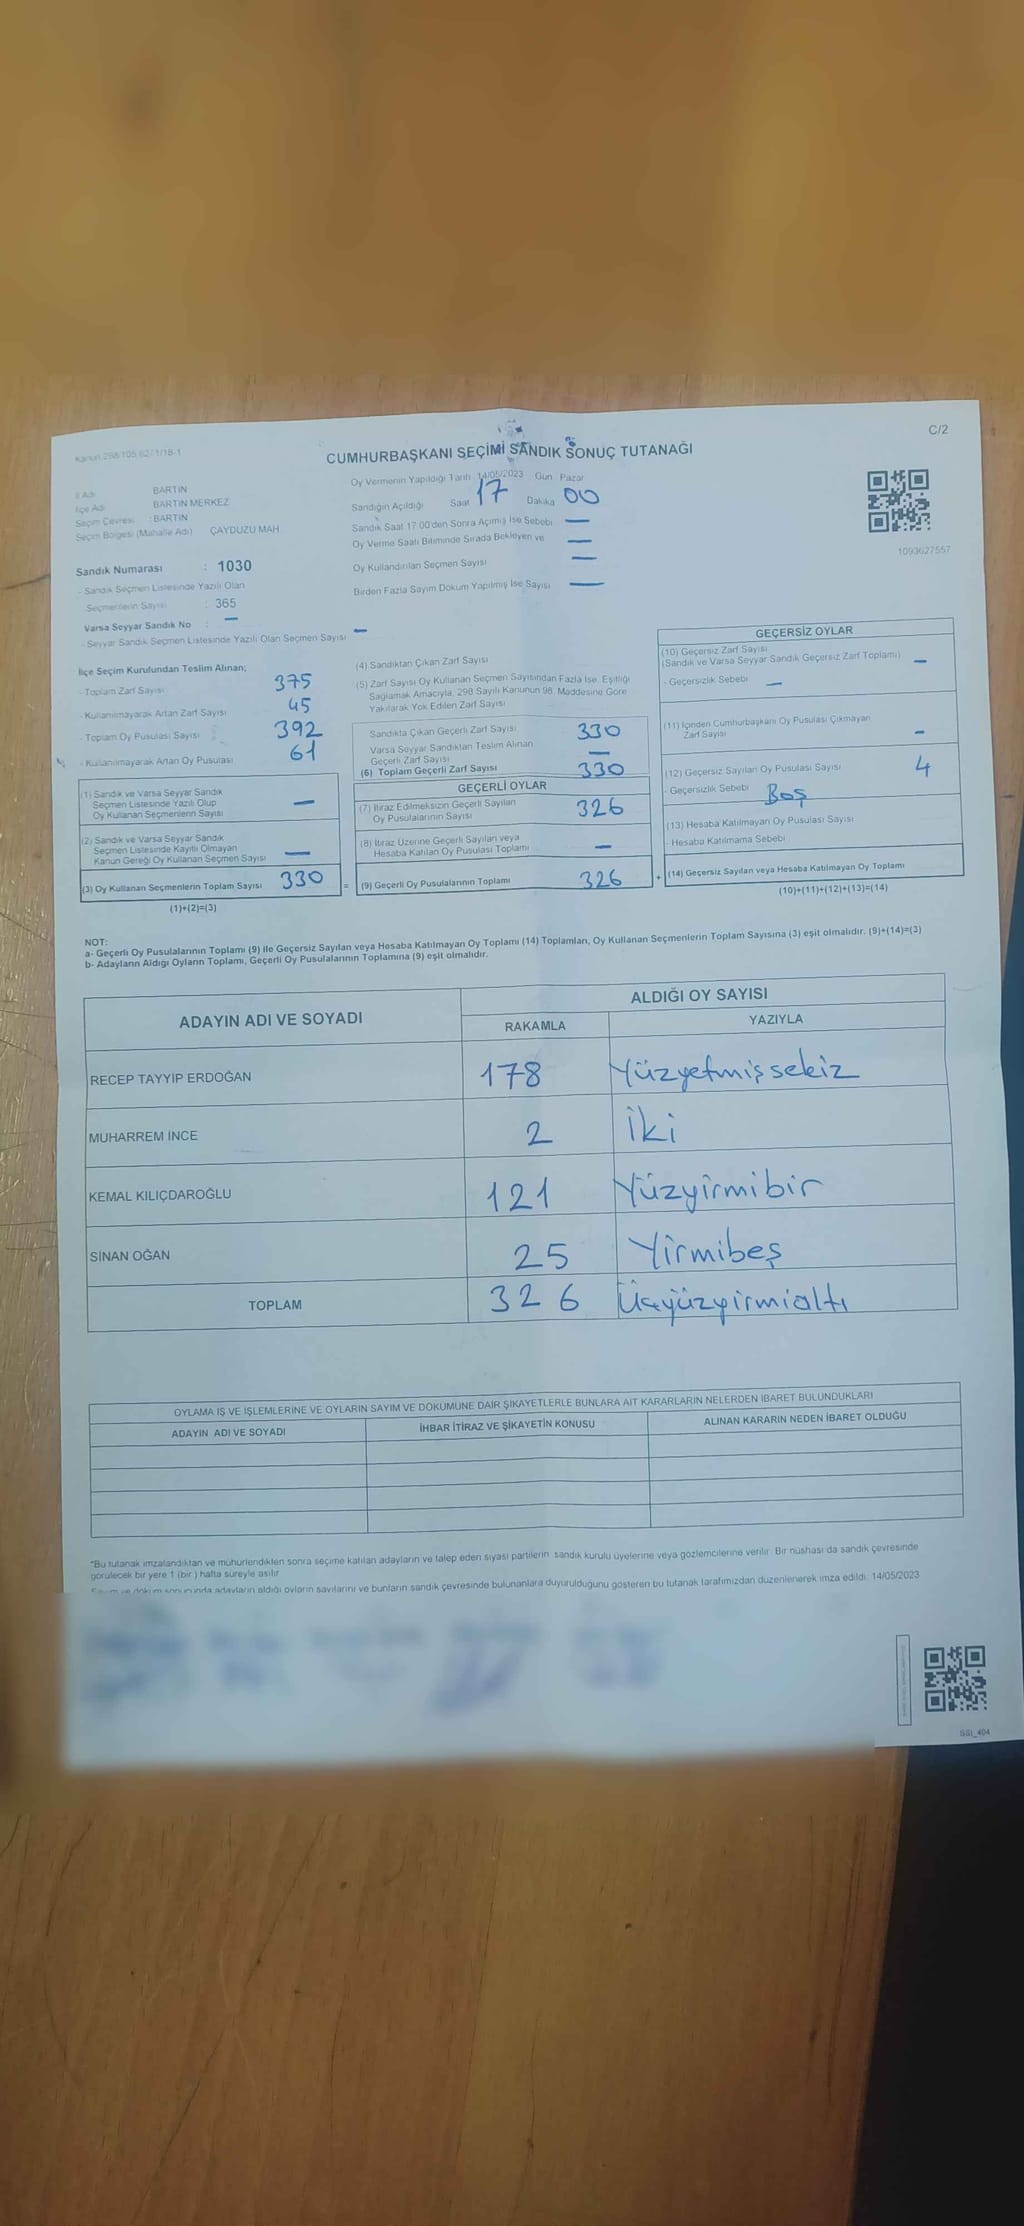 C/2
Kanun 298/105,6271/18-1
CUMHURBAŞKANI SEÇİMİ SANDIK SONUÇ TUTANAĞI
İl Adı BARTIN
İlçe Adı BARTIN MERKEZ
Seçim Çevresi : BARTIN
Seçim Bölgesi (Mahalle Adı) ÇAYDÜZÜ MAH
Oy Vermenin Yapıldığı Tarih 14/05/2023 Gün Pazar
Sandığın Açıldığı Saat 17 Dakika 00
Sandık Saat 17:00'den Sonra Açılmış İse Sebebi —
Oy Verme Saati Bitiminde Sırada Bekleyen ve —
Oy Kullandırılan Seçmen Sayısı —
Birden Fazla Sayım Döküm Yapılmış İse Sayısı —
1093627557
Sandık Numarası : 1030
- Sandık Seçmen Listesinde Yazılı Olan
Seçmenlerin Sayısı : 365
Varsa Seyyar Sandık No : —
- Seyyar Sandık Seçmen Listesinde Yazılı Olan Seçmen Sayısı —
İlçe Seçim Kurulundan Teslim Alınan;
- Toplam Zarf Sayısı 375
- Kullanılmayarak Artan Zarf Sayısı 45
- Toplam Oy Pusulası Sayısı 392
- Kullanılmayarak Artan Oy Pusulası 61
(1) Sandık ve Varsa Seyyar Sandık
Seçmen Listesinde Yazılı Olup
Oy Kullanan Seçmenlerin Sayısı —
(2) Sandık ve Varsa Seyyar Sandık
Seçmen Listesinde Kayıtlı Olmayan
Kanun Gereği Oy Kullanan Seçmen Sayısı —
(3) Oy Kullanan Seçmenlerin Toplam Sayısı 330 =
(1)+(2)=(3)
(4) Sandıktan Çıkan Zarf Sayısı
(5) Zarf Sayısı Oy Kullanan Seçmen Sayısından Fazla İse, Eşitliği
Sağlamak Amacıyla, 298 Sayılı Kanunun 98. Maddesine Göre
Yakılarak Yok Edilen Zarf Sayısı
Sandıkta Çıkan Geçerli Zarf Sayısı 330
Varsa Seyyar Sandıktan Teslim Alınan
Geçerli Zarf Sayısı —
(6) Toplam Geçerli Zarf Sayısı 330
GEÇERLİ OYLAR
(7) İtiraz Edilmeksizin Geçerli Sayılan
Oy Pusulalarının Sayısı 326
(8) İtiraz Üzerine Geçerli Sayılan veya
Hesaba Katılan Oy Pusulası Toplamı —
(9) Geçerli Oy Pusulalarının Toplamı 326 +
GEÇERSİZ OYLAR
(10) Geçersiz Zarf Sayısı
(Sandık ve Varsa Seyyar Sandık Geçersiz Zarf Toplamı) —
- Geçersizlik Sebebi —
(11) İçinden Cumhurbaşkanı Oy Pusulası Çıkmayan
Zarf Sayısı —
(12) Geçersiz Sayılan Oy Pusulası Sayısı 4
- Geçersizlik Sebebi Boş
(13) Hesaba Katılmayan Oy Pusulası Sayısı
- Hesaba Katılmama Sebebi
(14) Geçersiz Sayılan veya Hesaba Katılmayan Oy Toplamı
(10)+(11)+(12)+(13)=(14)
NOT:
a- Geçerli Oy Pusulalarının Toplamı (9) ile Geçersiz Sayılan veya Hesaba Katılmayan Oy Toplamı (14) Toplamları, Oy Kullanan Seçmenlerin Toplam Sayısına (3) eşit olmalıdır. (9)+(14)=(3)
b- Adayların Aldığı Oyların Toplamı, Geçerli Oy Pusulalarının Toplamına (9) eşit olmalıdır.
ADAYIN ADI VE SOYADI
ALDIĞI OY SAYISI
RAKAMLA YAZIYLA
RECEP TAYYİP ERDOĞAN 178 Yüzyetmişsekiz
MUHARREM İNCE 2 İki
KEMAL KILIÇDAROĞLU 121 Yüzyirmibir
SİNAN OĞAN 25 Yirmibeş
TOPLAM 326 Üçyüzyirmialtı
OYLAMA İŞ VE İŞLEMLERİNE VE OYLARIN SAYIM VE DÖKÜMÜNE DAİR ŞİKAYETLERLE BUNLARA AİT KARARLARIN NELERDEN İBARET BULUNDUKLARI
ADAYIN ADI VE SOYADI İHBAR İTİRAZ VE ŞİKAYETİN KONUSU ALINAN KARARIN NEDEN İBARET OLDUĞU
*Bu tutanak imzalandıktan ve mühürlendikten sonra seçime katılan adayların ve talep eden siyasi partilerin sandık kurulu üyelerine veya gözlemcilerine verilir. Bir nüshası da sandık çevresinde
görülecek bir yere 1 (bir) hafta süreyle asılır.
Sayım ve döküm sonucunda adayların aldığı oyların sayılarını ve bunların sandık çevresinde bulunanlara duyurulduğunu gösteren bu tutanak tarafımızdan düzenlenerek imza edildi. 14/05/2023
SSI_404